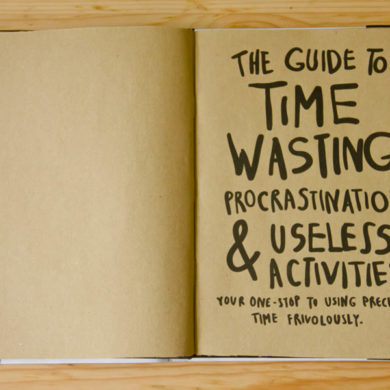 THE GUIDE TO
TIME
WASTING
PROCRASTINATIO
& USELESS
ACTIVITIE
YOUR ONE-STOP TO USING PREC
TIME FRIVOLOUSLY.